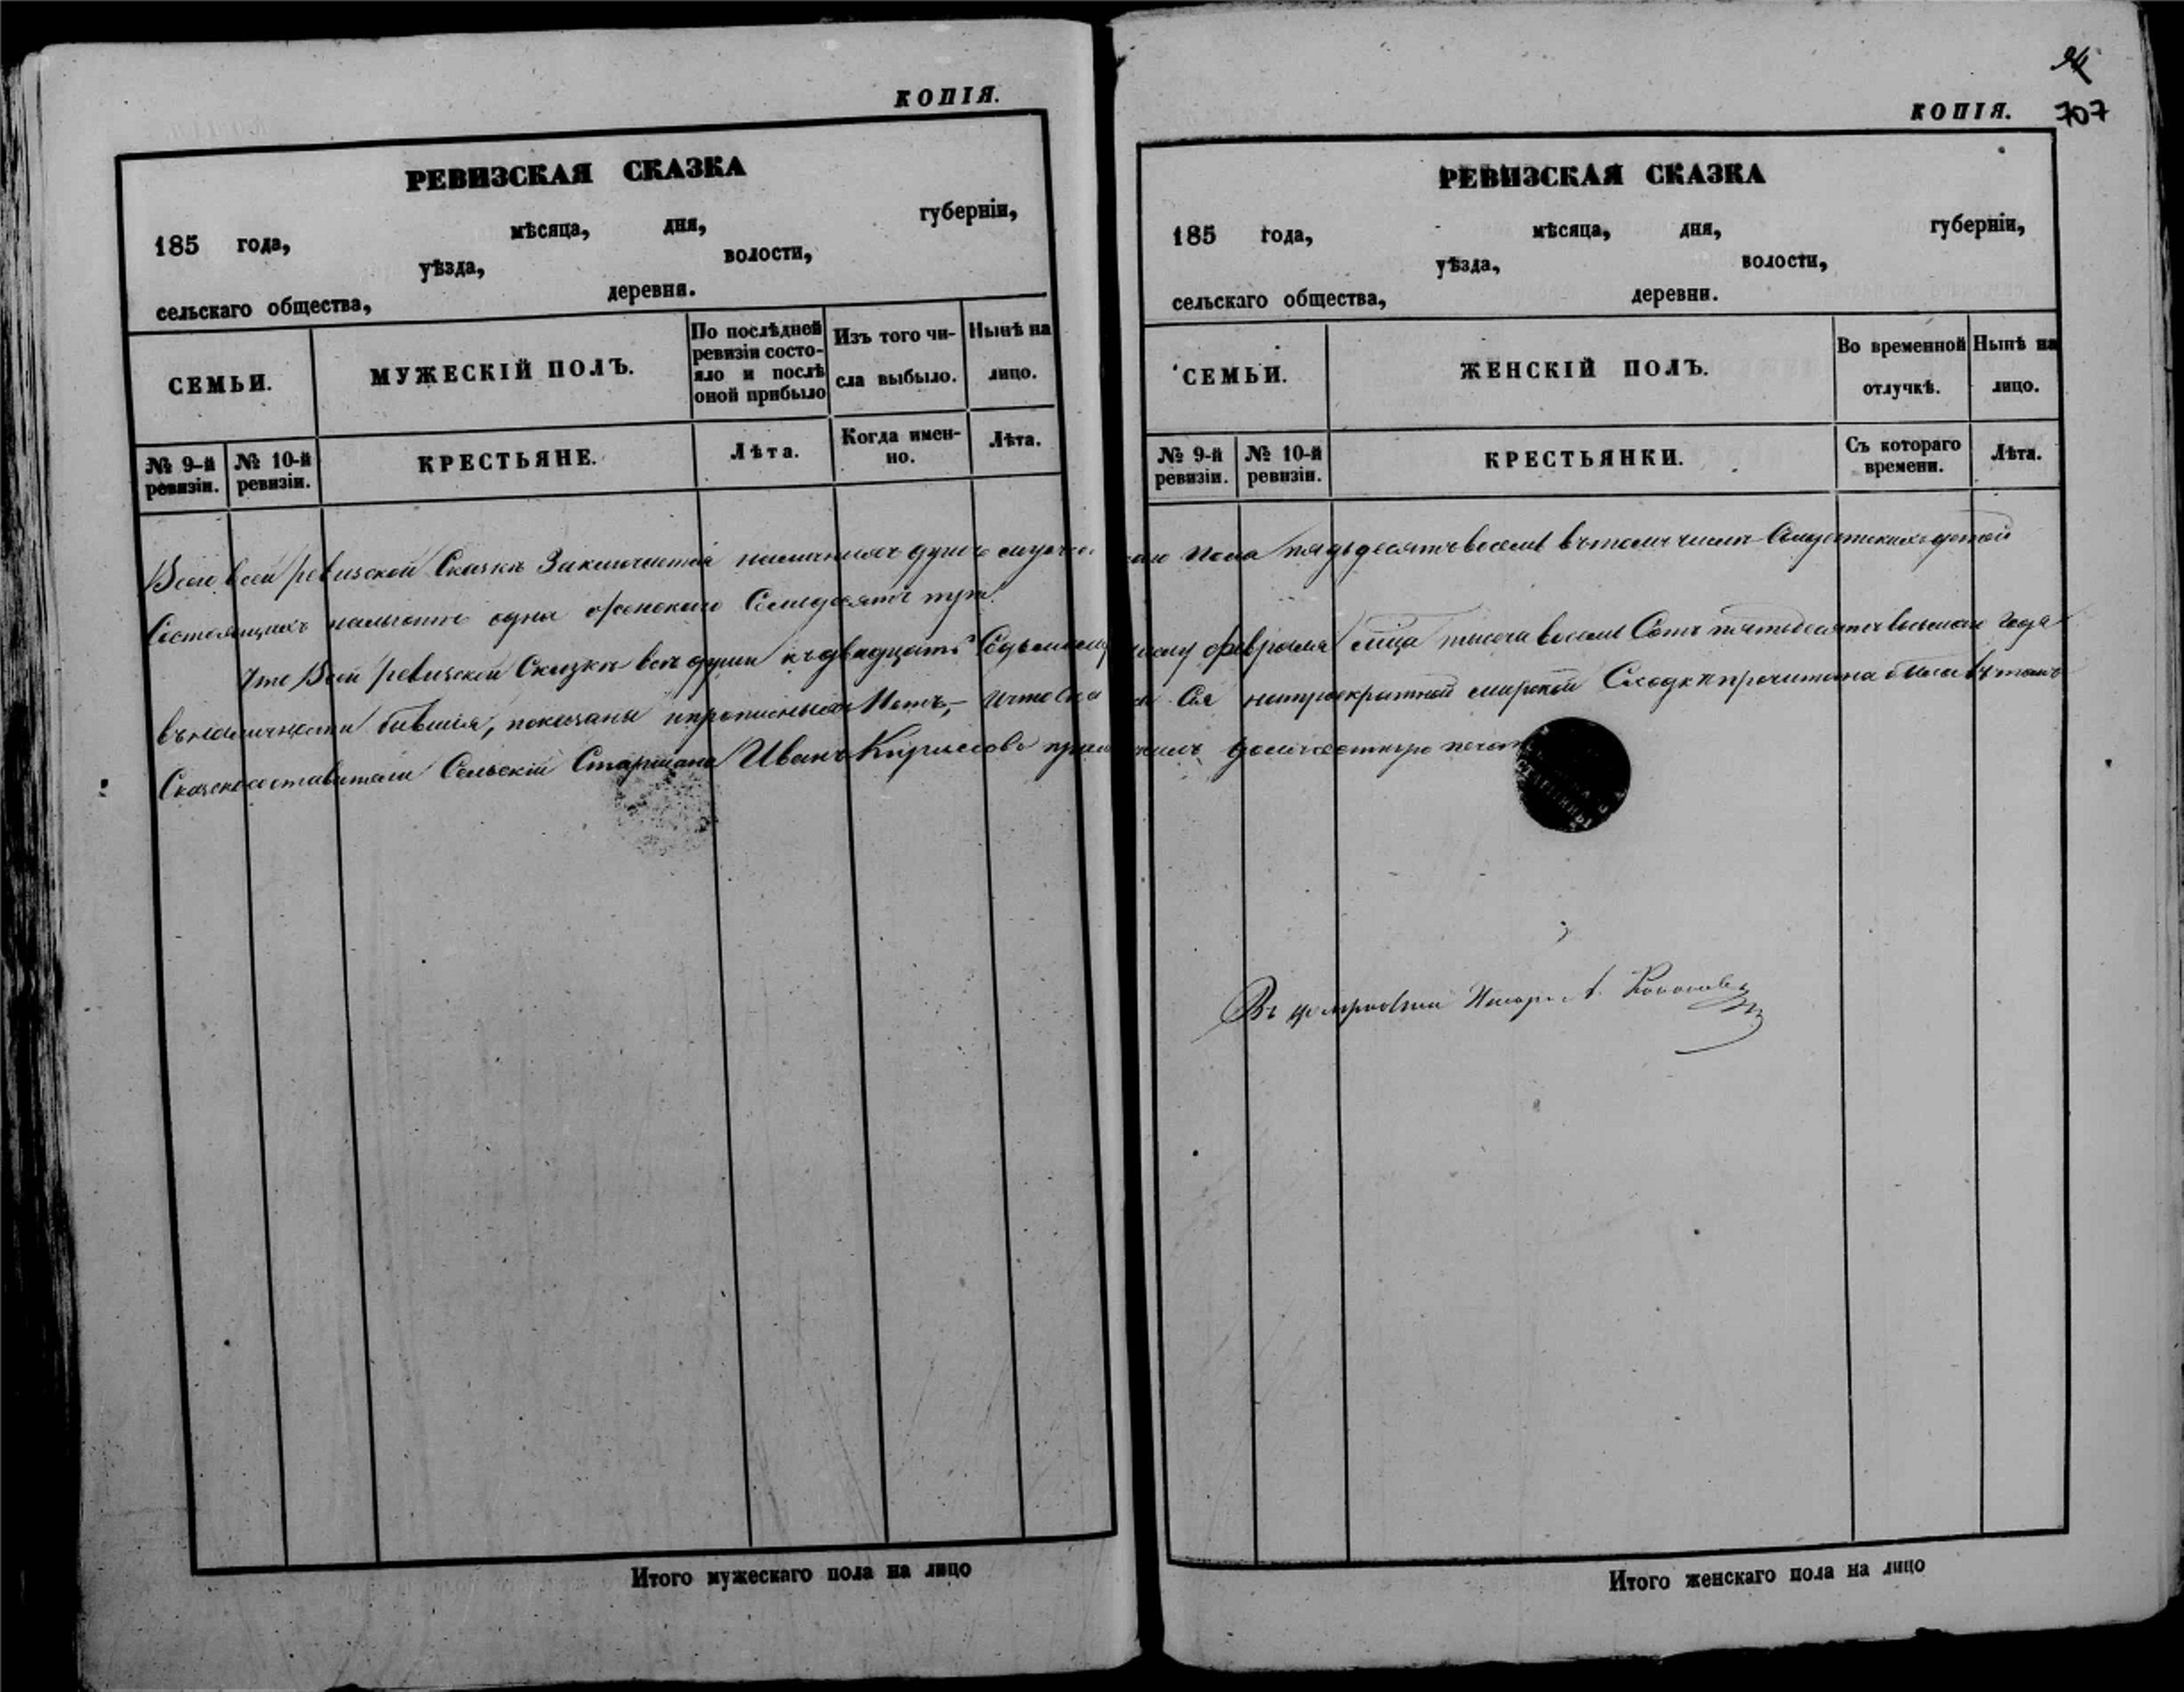 КОПІЯ.
РЕВИЗСКАЯ СКАЗКА
185 года, мѣсяца, дня, губерніи,
уѣзда, волости,
сельскаго общества, деревни.
СЕМЬИ.
МУЖЕСКІЙ ПОЛЪ.
По послѣдней
ревизіи состо-
яло и послѣ
оной прибыло
Изъ того чи-
сла выбыло.
Нынѣ на
лицо.
№ 9-й
ревизіи.
№ 10-й
ревизіи.
КРЕСТЬЯНЕ.
Лѣта.
Когда имен-
но.
Лѣта.
Итого мужескаго пола на лицо
94
707
КОПІЯ.
РЕВИЗСКАЯ СКАЗКА
185 года, мѣсяца, дня, губерніи,
уѣзда, волости,
сельскаго общества, деревни.
СЕМЬИ.
ЖЕНСКІЙ ПОЛЪ.
Во временной
отлучкѣ.
Нынѣ на
лицо.
№ 9-й
ревизіи.
№ 10-й
ревизіи.
КРЕСТЬЯНКИ.
Съ котораго
времени.
Лѣта.
Всего всей ревизской Сказкѣ Заключается наличныхъ душъ мужескаго пола пядьдесятъ восемь въ томъ числѣ дѣтей
Состоящихъ одна женскаго Семидесятъ три.
Что Всей ревизской Сказкѣ всѣ души къ двадцать февраля мѣца тысяча восемь Сотъ пятьдесятъ восьмаго года
въ наличности бывшія, показаны и прописныхъ Нѣтъ, – и что Сказка Сія мирской Сходкѣ прочитана была въ томъ
Сказкосоставители Сельскій Старшина Иванъ Кириловъ приложилъ должностную печать
СТАРШИНЫ
Писарь А.
Итого женскаго пола на лицо